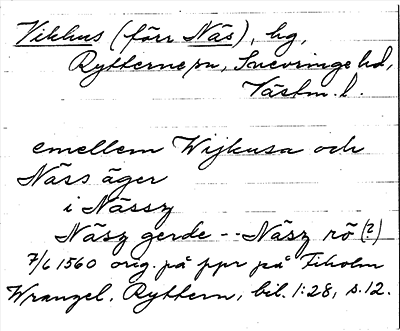 Vikhus (förr Näs), hg,
Rytterne sn, Snevringe hd,
Västm. l.
emellem Wijkusa och
Näss äger
i Nässz
Näsz gerde -- Näsz rö (?)
7/6 1560 orig. på ppr på Tidholm
Wrangel. Ryttern, bil. 1:28, s. 12.